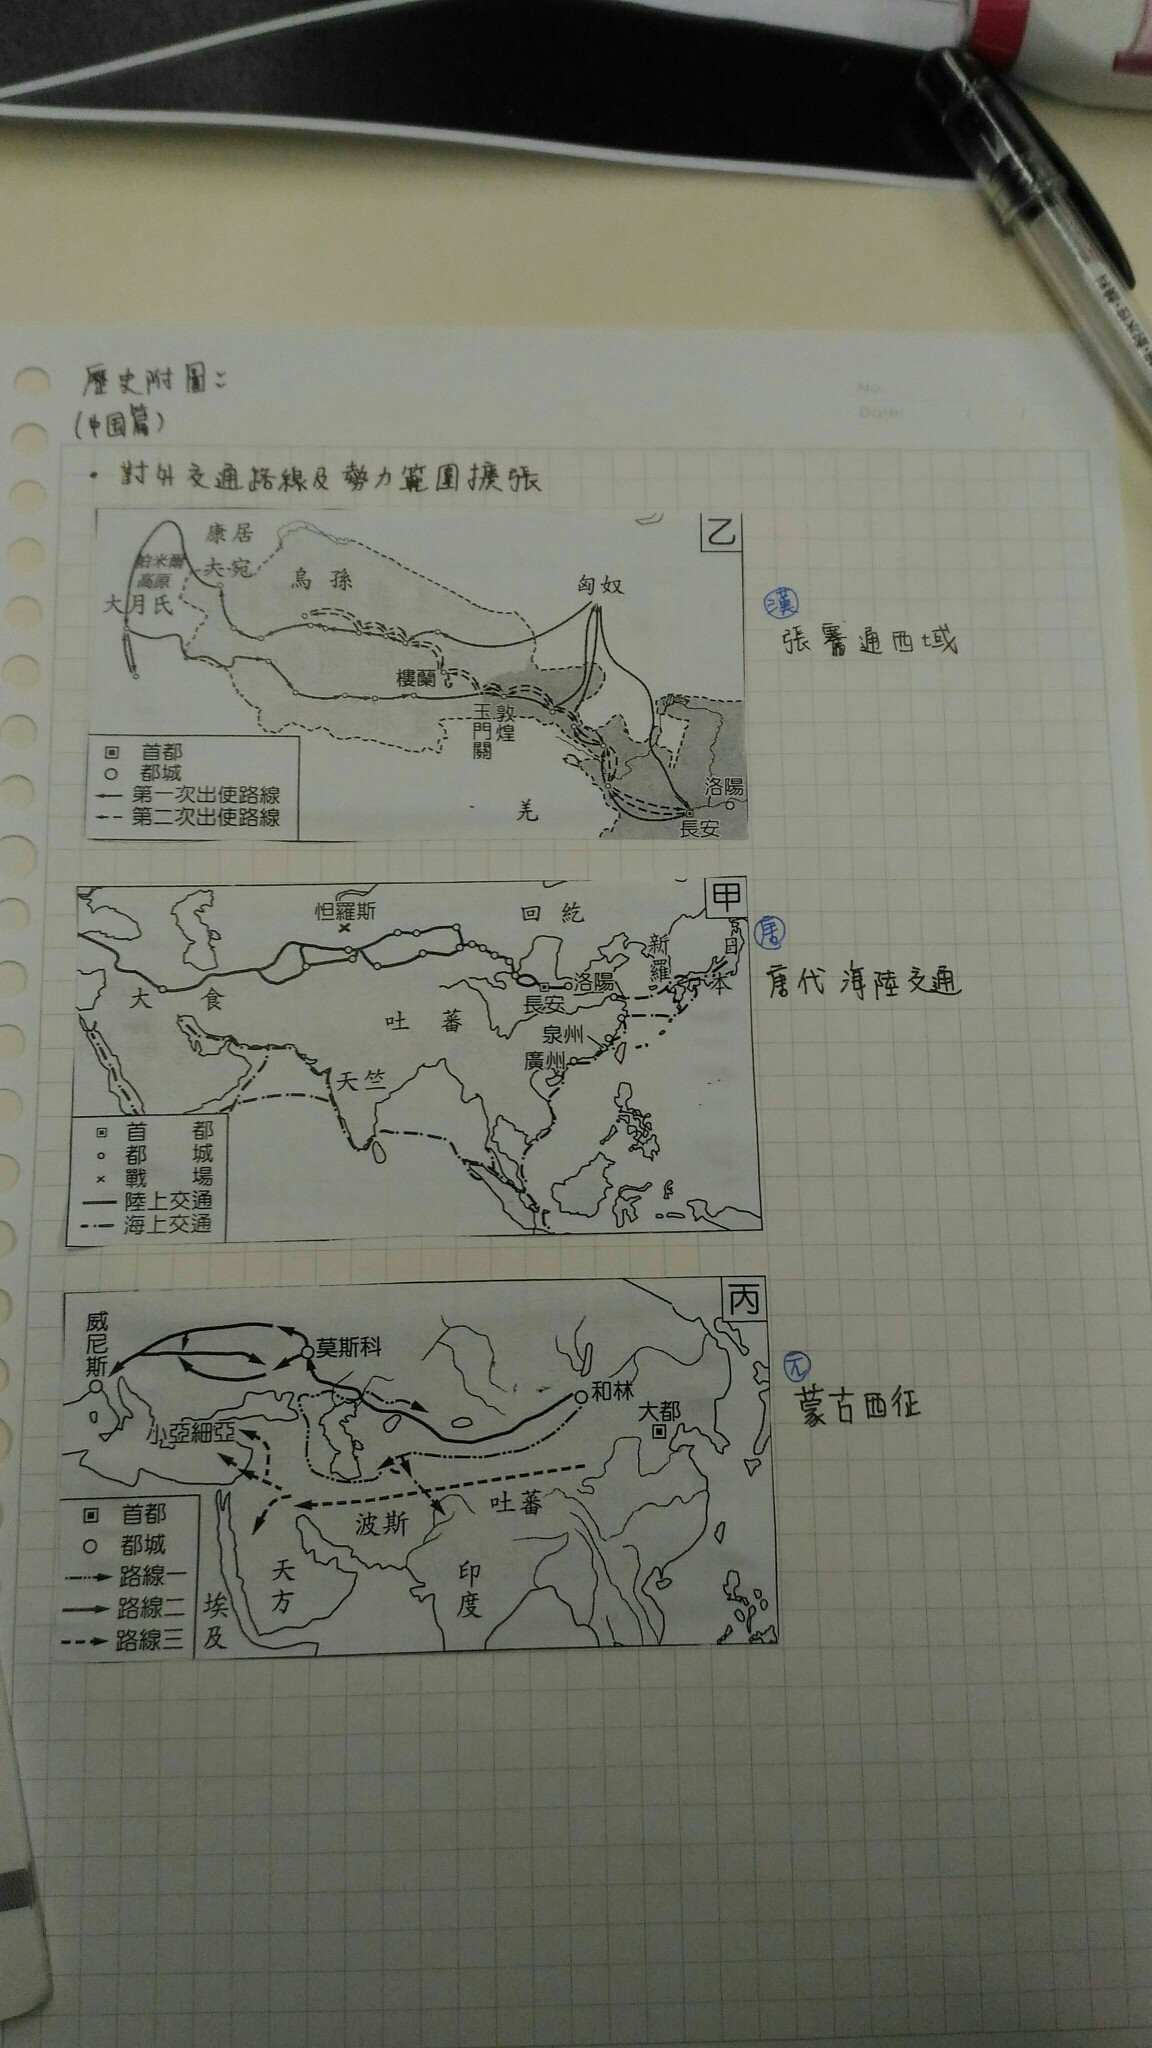 歷史附圖:
(中国篇)
• 對外交通路線及勢力範圍擴張
乙
康居
帕米爾
高原
大宛
烏孫
匈奴
大月氏
樓蘭
玉門關
敦煌
羌
洛陽
長安
首都
都城
第一次出使路線
第二次出使路線
漢
張騫通西域
甲
怛羅斯
回紇
新羅
日本
大食
洛陽
長安
吐蕃
泉州
廣州
天竺
首都
都城
戰場
陸上交通
海上交通
唐
唐代海陸交通
丙
威尼斯
莫斯科
和林
大都
小亞細亞
吐蕃
波斯
天方
印度
埃及
首都
都城
路線一
路線二
路線三
元
蒙古西征